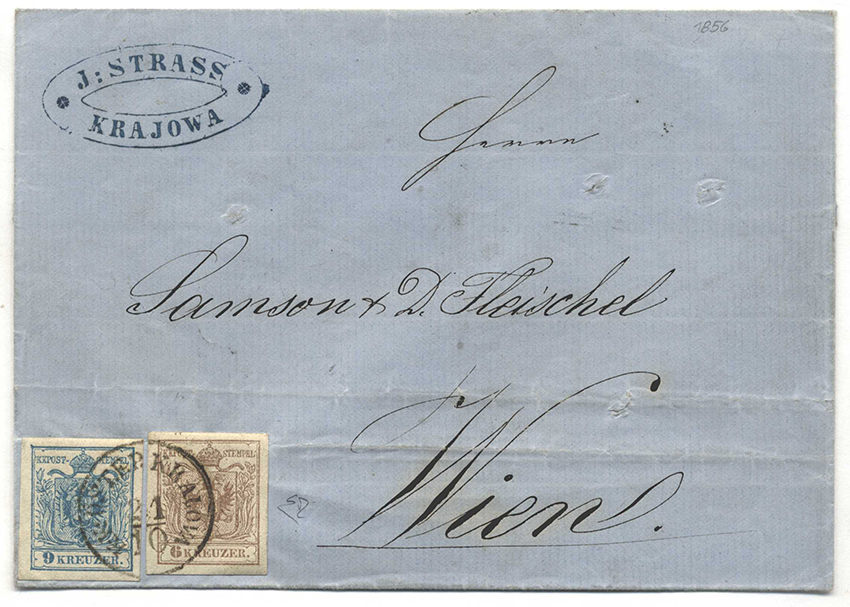 1856
J: STRASS
KRAJOWA
Herrn
Samson & D. Fleischel
Wien.
KK POST-STEMPEL
9 KREUZER.
KK POST-STEMPEL
6 KREUZER.
KRAJOWA
21
10